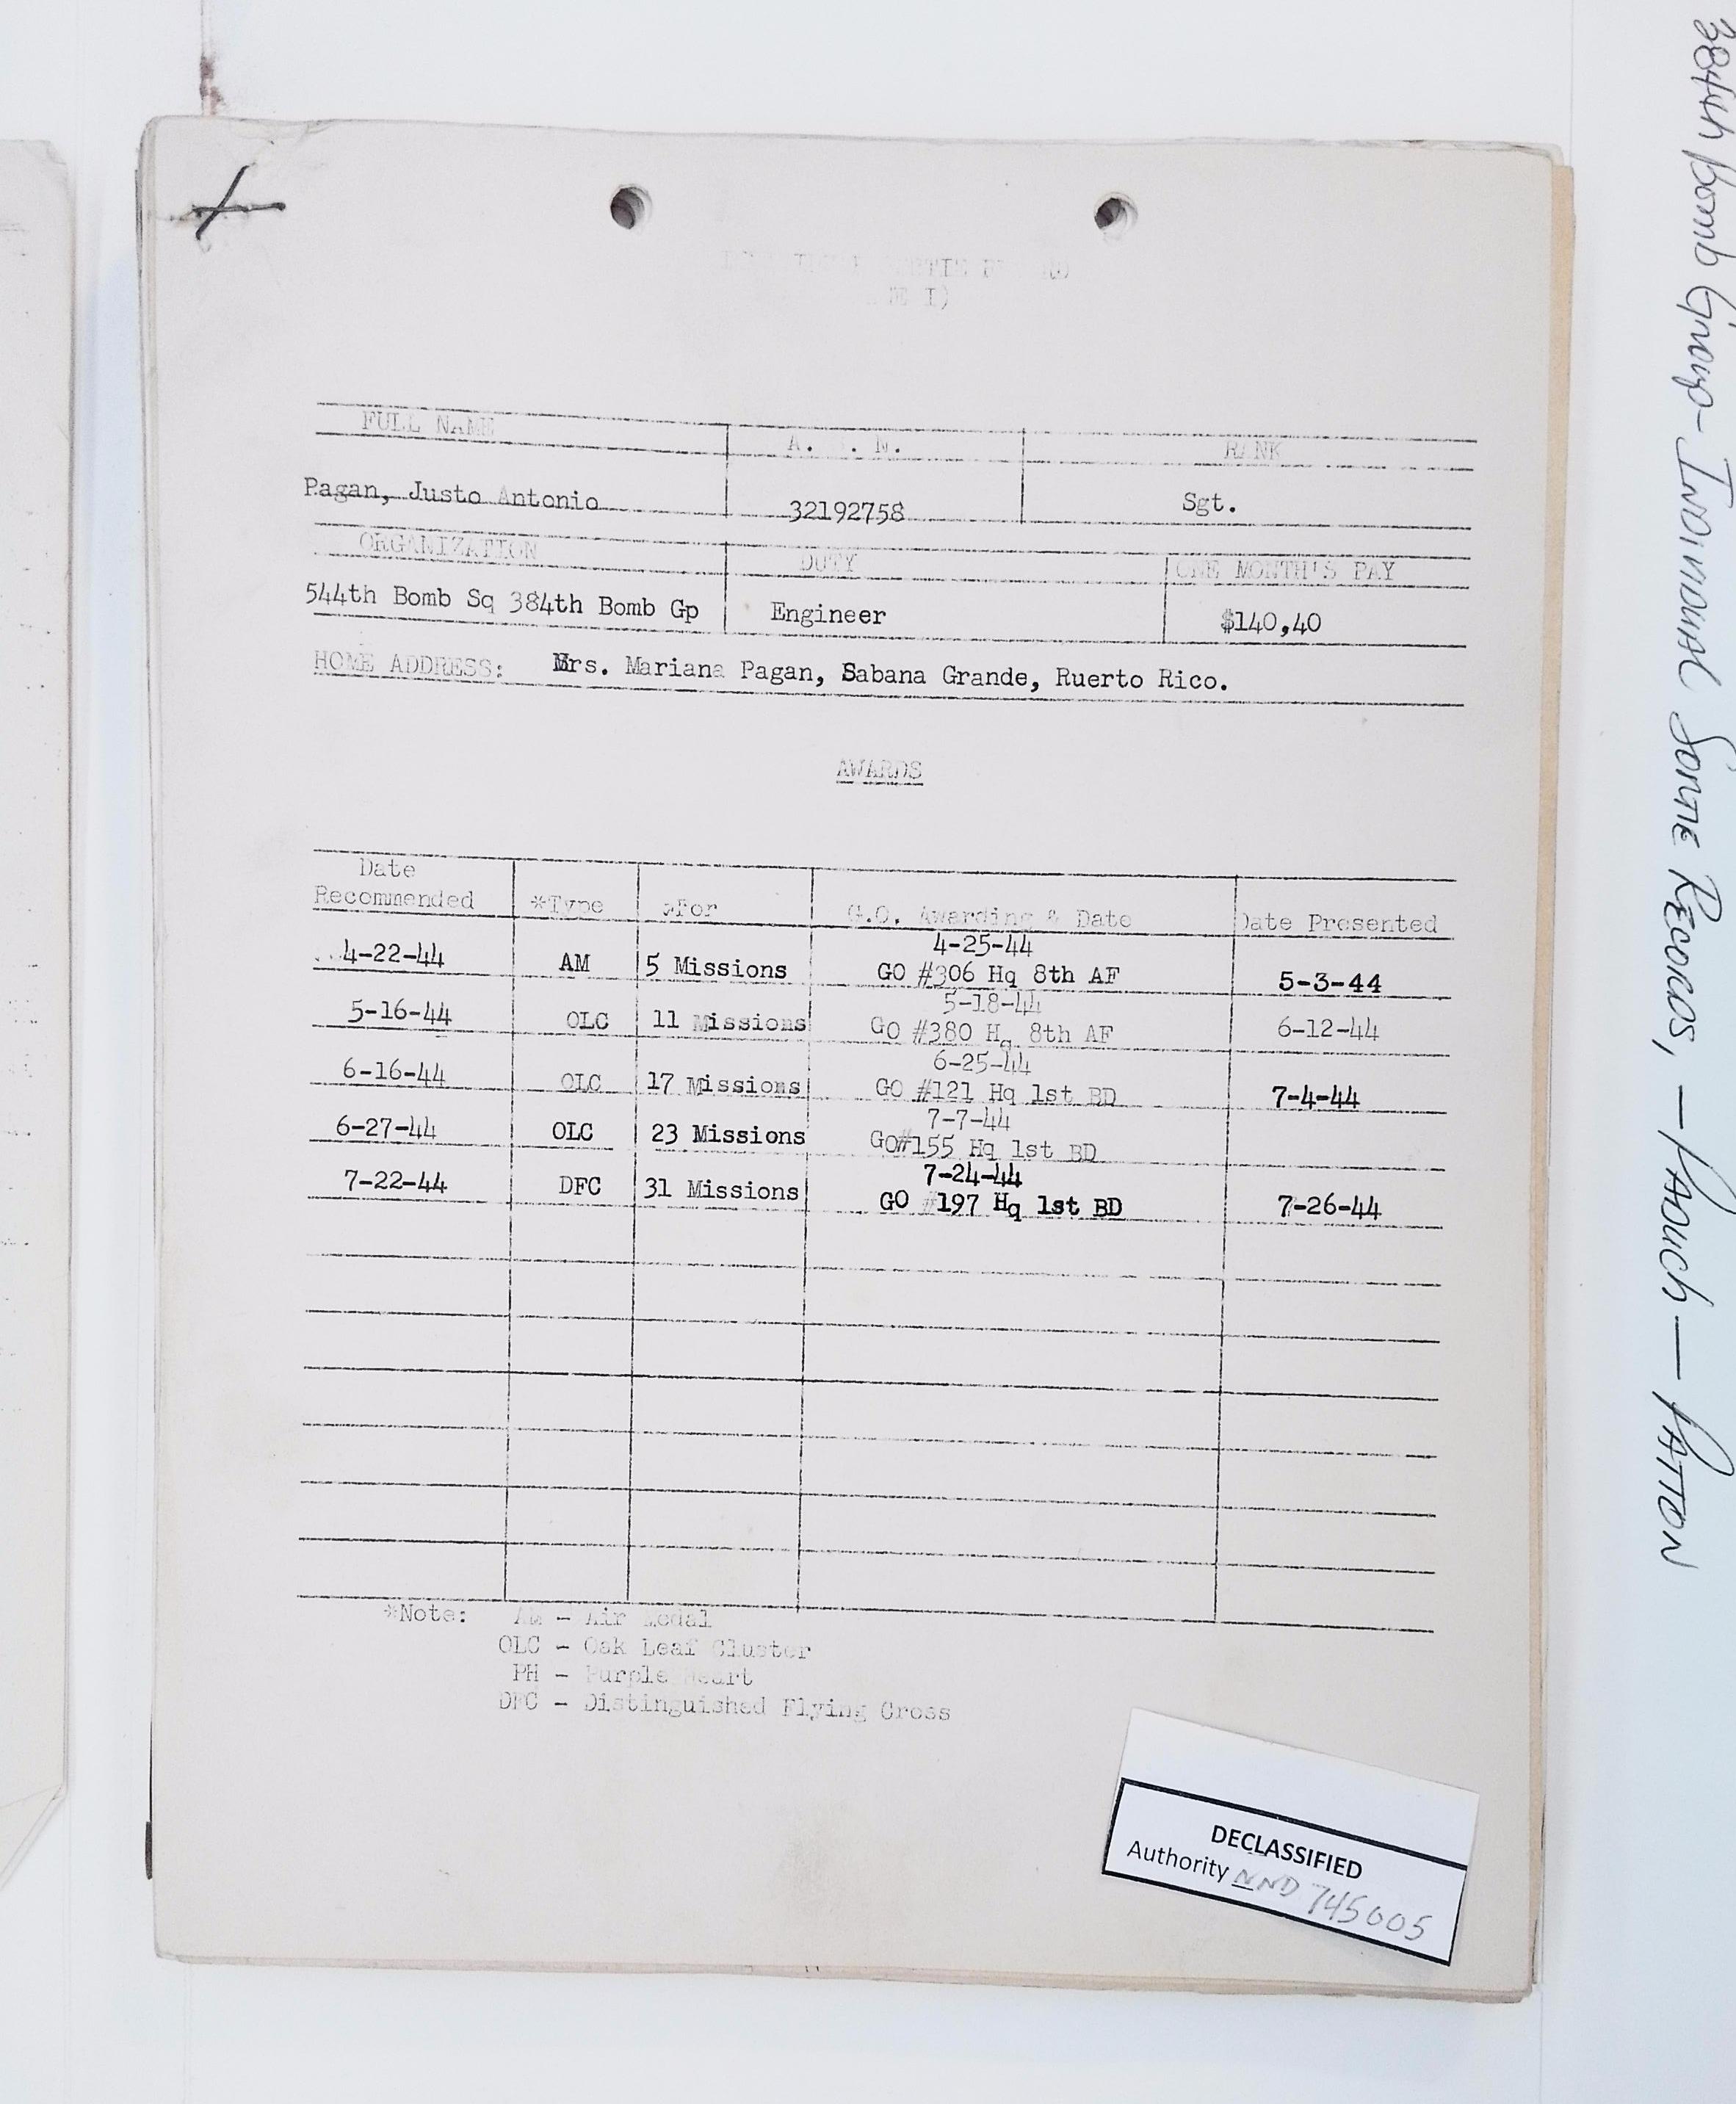 FULL NAME
A. S. N.
RANK
Pagan, Justo Antonio
32192758
Sgt.
ORGANIZATION
DUTY
ONE MONTH'S PAY
544th Bomb Sq 384th Bomb Gp
Engineer
$140,40
HOME ADDRESS: Mrs. Mariana Pagan, Sabana Grande, Ruerto Rico.
AWARDS
Date
Recommended *Type *For G.O. Awarding & Date Date Presented
4-25-44
4-22-44 AM 5 Missions GO #306 Hq 8th AF 5-3-44
5-18-44
5-16-44 OLC 11 Missions GO #380 Hq 8th AF 6-12-44
6-25-44
6-16-44 OLC 17 Missions GO #121 Hq 1st BD 7-4-44
7-7-44
6-27-44 OLC 23 Missions GO#155 Hq 1st BD
7-24-44
7-22-44 DFC 31 Missions GO #197 Hq 1st BD 7-26-44
*Note: AM - Air Medal
OLC - Oak Leaf Cluster
PH - Purple Heart
DFC - Distinguished Flying Cross
DECLASSIFIED
Authority NND 745005
384th Bomb Group - Individual Sortie Records, - Paduch - Patton